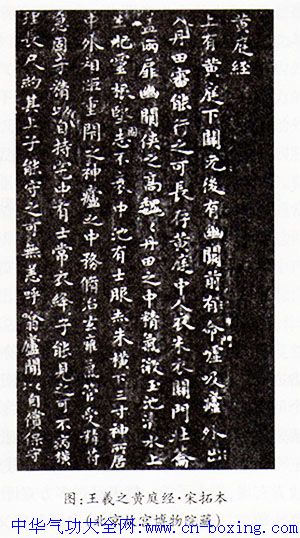 黄庭經
上有黄庭下關元後有幽闕前有命噓吸廬外出
入丹田審能行之可長存黄庭中人衣朱衣關門壯籥
蓋兩扉幽闕俠之高魏〻丹田之中精氣微玉池清水上
生肥靈根堅志不衰中池有士服赤朱橫下三寸神所居
中外相距重閉之神廬之中務脩治玄廱氣管受精符
急固子精以自持宅中有士常衣絳子能見之可不病橫
理長尺約其上子能守之可無恙呼噏廬間以自償保守
图:王羲之黄庭经·宋拓本
(北京故宫博物院藏)
中华气功大全网:www.cn-boxing.com